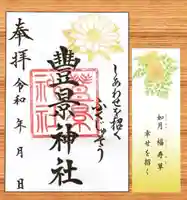 奉拝
しあわせを招く
ふくじゅそう
豊景神社
令和 年 月 日
如月 福寿草
幸せを招く